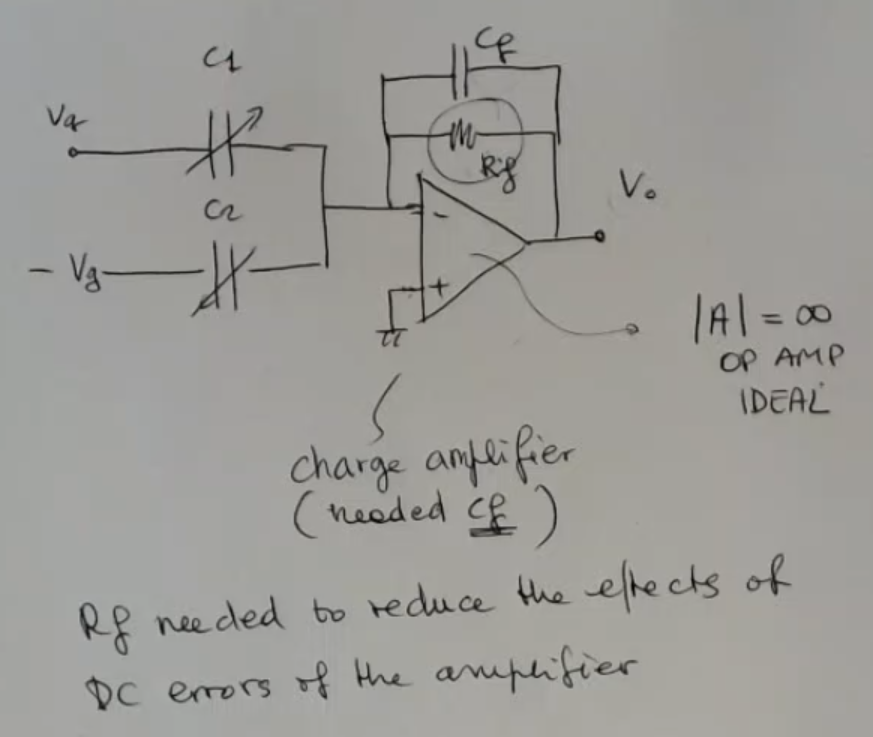 C1
Cf
Va
Rf
C2
Vo
- Vg
-
+
|A| = ∞
OP AMP
IDEAL
charge amplifier
(needed Cf)
Rf needed to reduce the effects of
DC errors of the amplifier